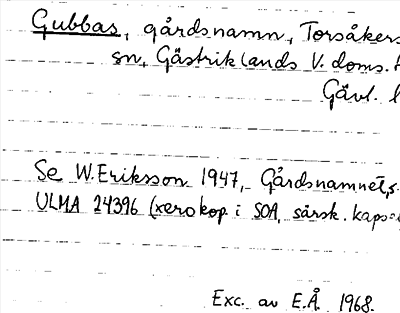 Gubbas, gårdsnamn, Torsåkers
sn, Gästriklands V. doms.
Gävl. l
Se W. Eriksson 1947, Gårdsnamnet, s.
ULMA 24396 (xerokop i SOA, särsk. kaps
Exc. av E.Å. 1968.